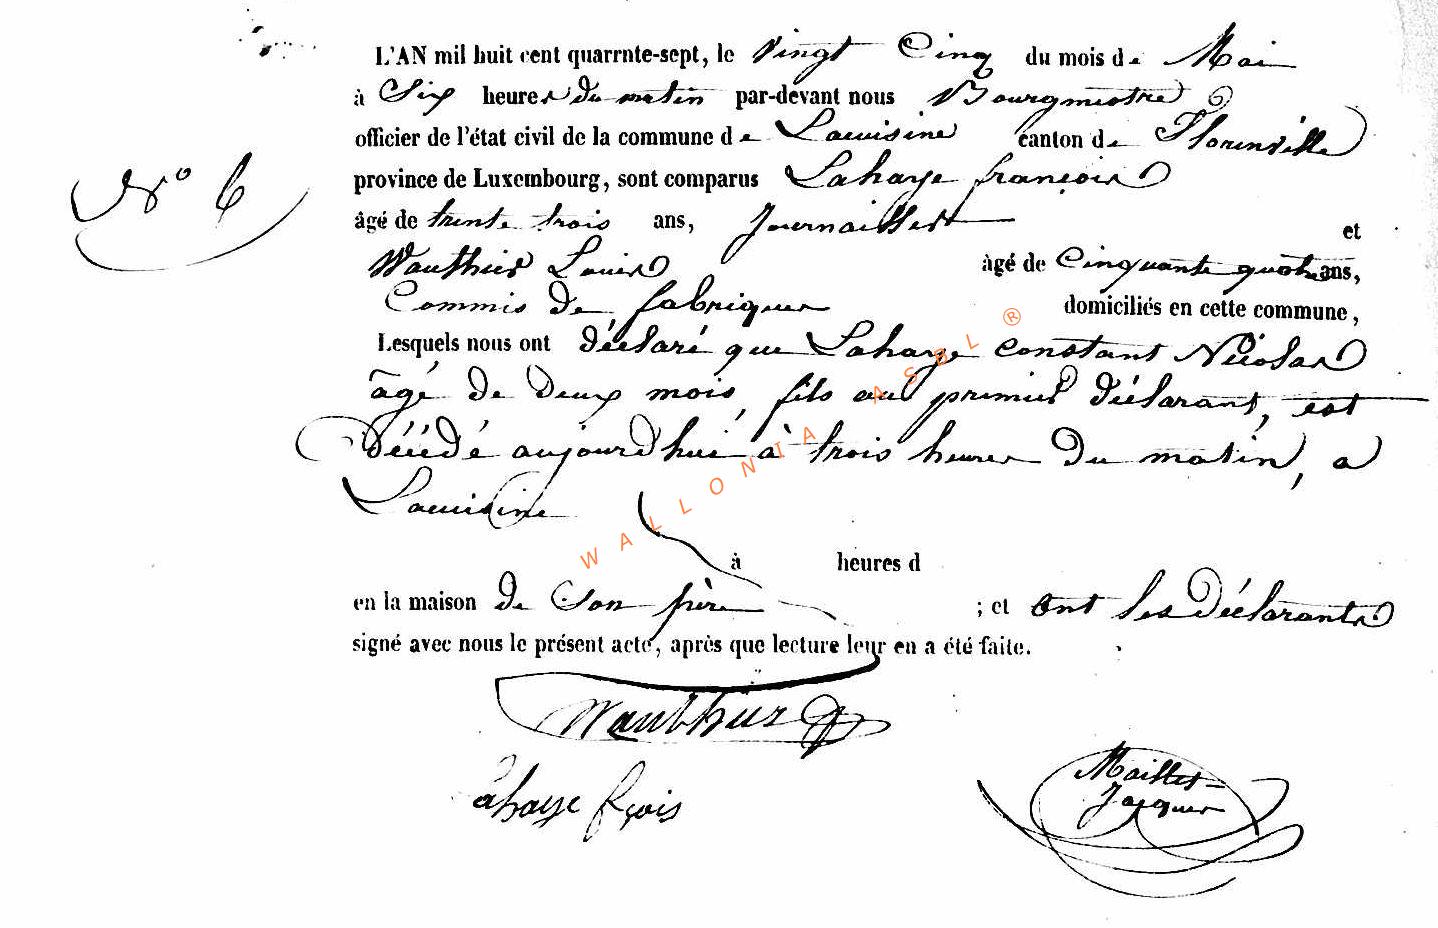 L'AN mil huit cent quarrnte-sept, le vingt Cinq du mois de Mai
à Six heures du matin par-devant nous Bourgmestre
officier de l'état civil de la commune de Lacuisine canton de Florenville
N° 6
province de Luxembourg, sont comparus Lahaye françois
âgé de trente trois ans, Journaillier et
Wauthier Louis âgé de Cinquante quatre ans,
Commis de fabriques domiciliés en cette commune,
Lesquels nous ont déclaré que Lahaye Constant Nicolas
âgé de deux mois, fils du premier déclarant, est
décédé aujourd'hui à trois heures du matin, a
Lacuisine
à heures d
en la maison de Son père ; et ont les déclarants
signé avec nous le présent acte, après que lecture leur en a été faite.
Wauthier
Lahaye fçois
Maillet
Jacques
WALLONIA ASBL ®